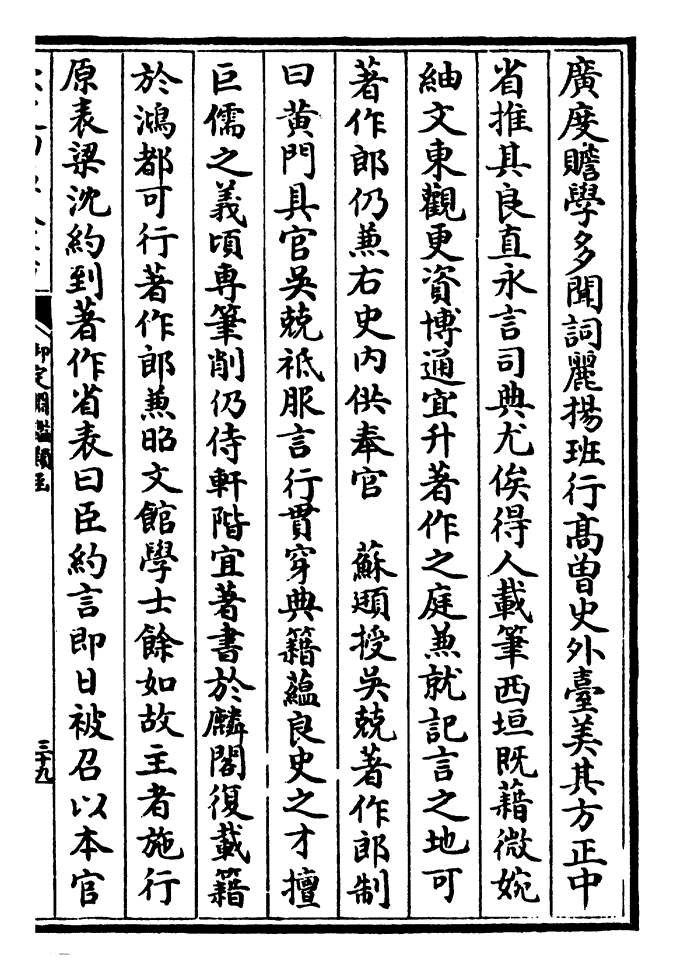 廣度贍學多聞詞麗揚班行髙曽史外臺美其方正中
省推其良直永言司典尤俟得人載筆西垣既藉微婉
紬文東觀更資博通宜升著作之庭兼就記言之地可
著作郎仍兼右史内供奉官　蘇頲授吳兢著作郎制
曰黄門具官吳兢祗服言行貫穿典籍蘊良史之才擅
巨儒之義頃專筆削仍侍軒階宜著書於麟閣復載籍
於鴻都可行著作郎兼昭文館學士餘如故主者施行
原表梁沈約到著作省表曰臣約言即日被召以本官
御定淵鑑類函
三十九